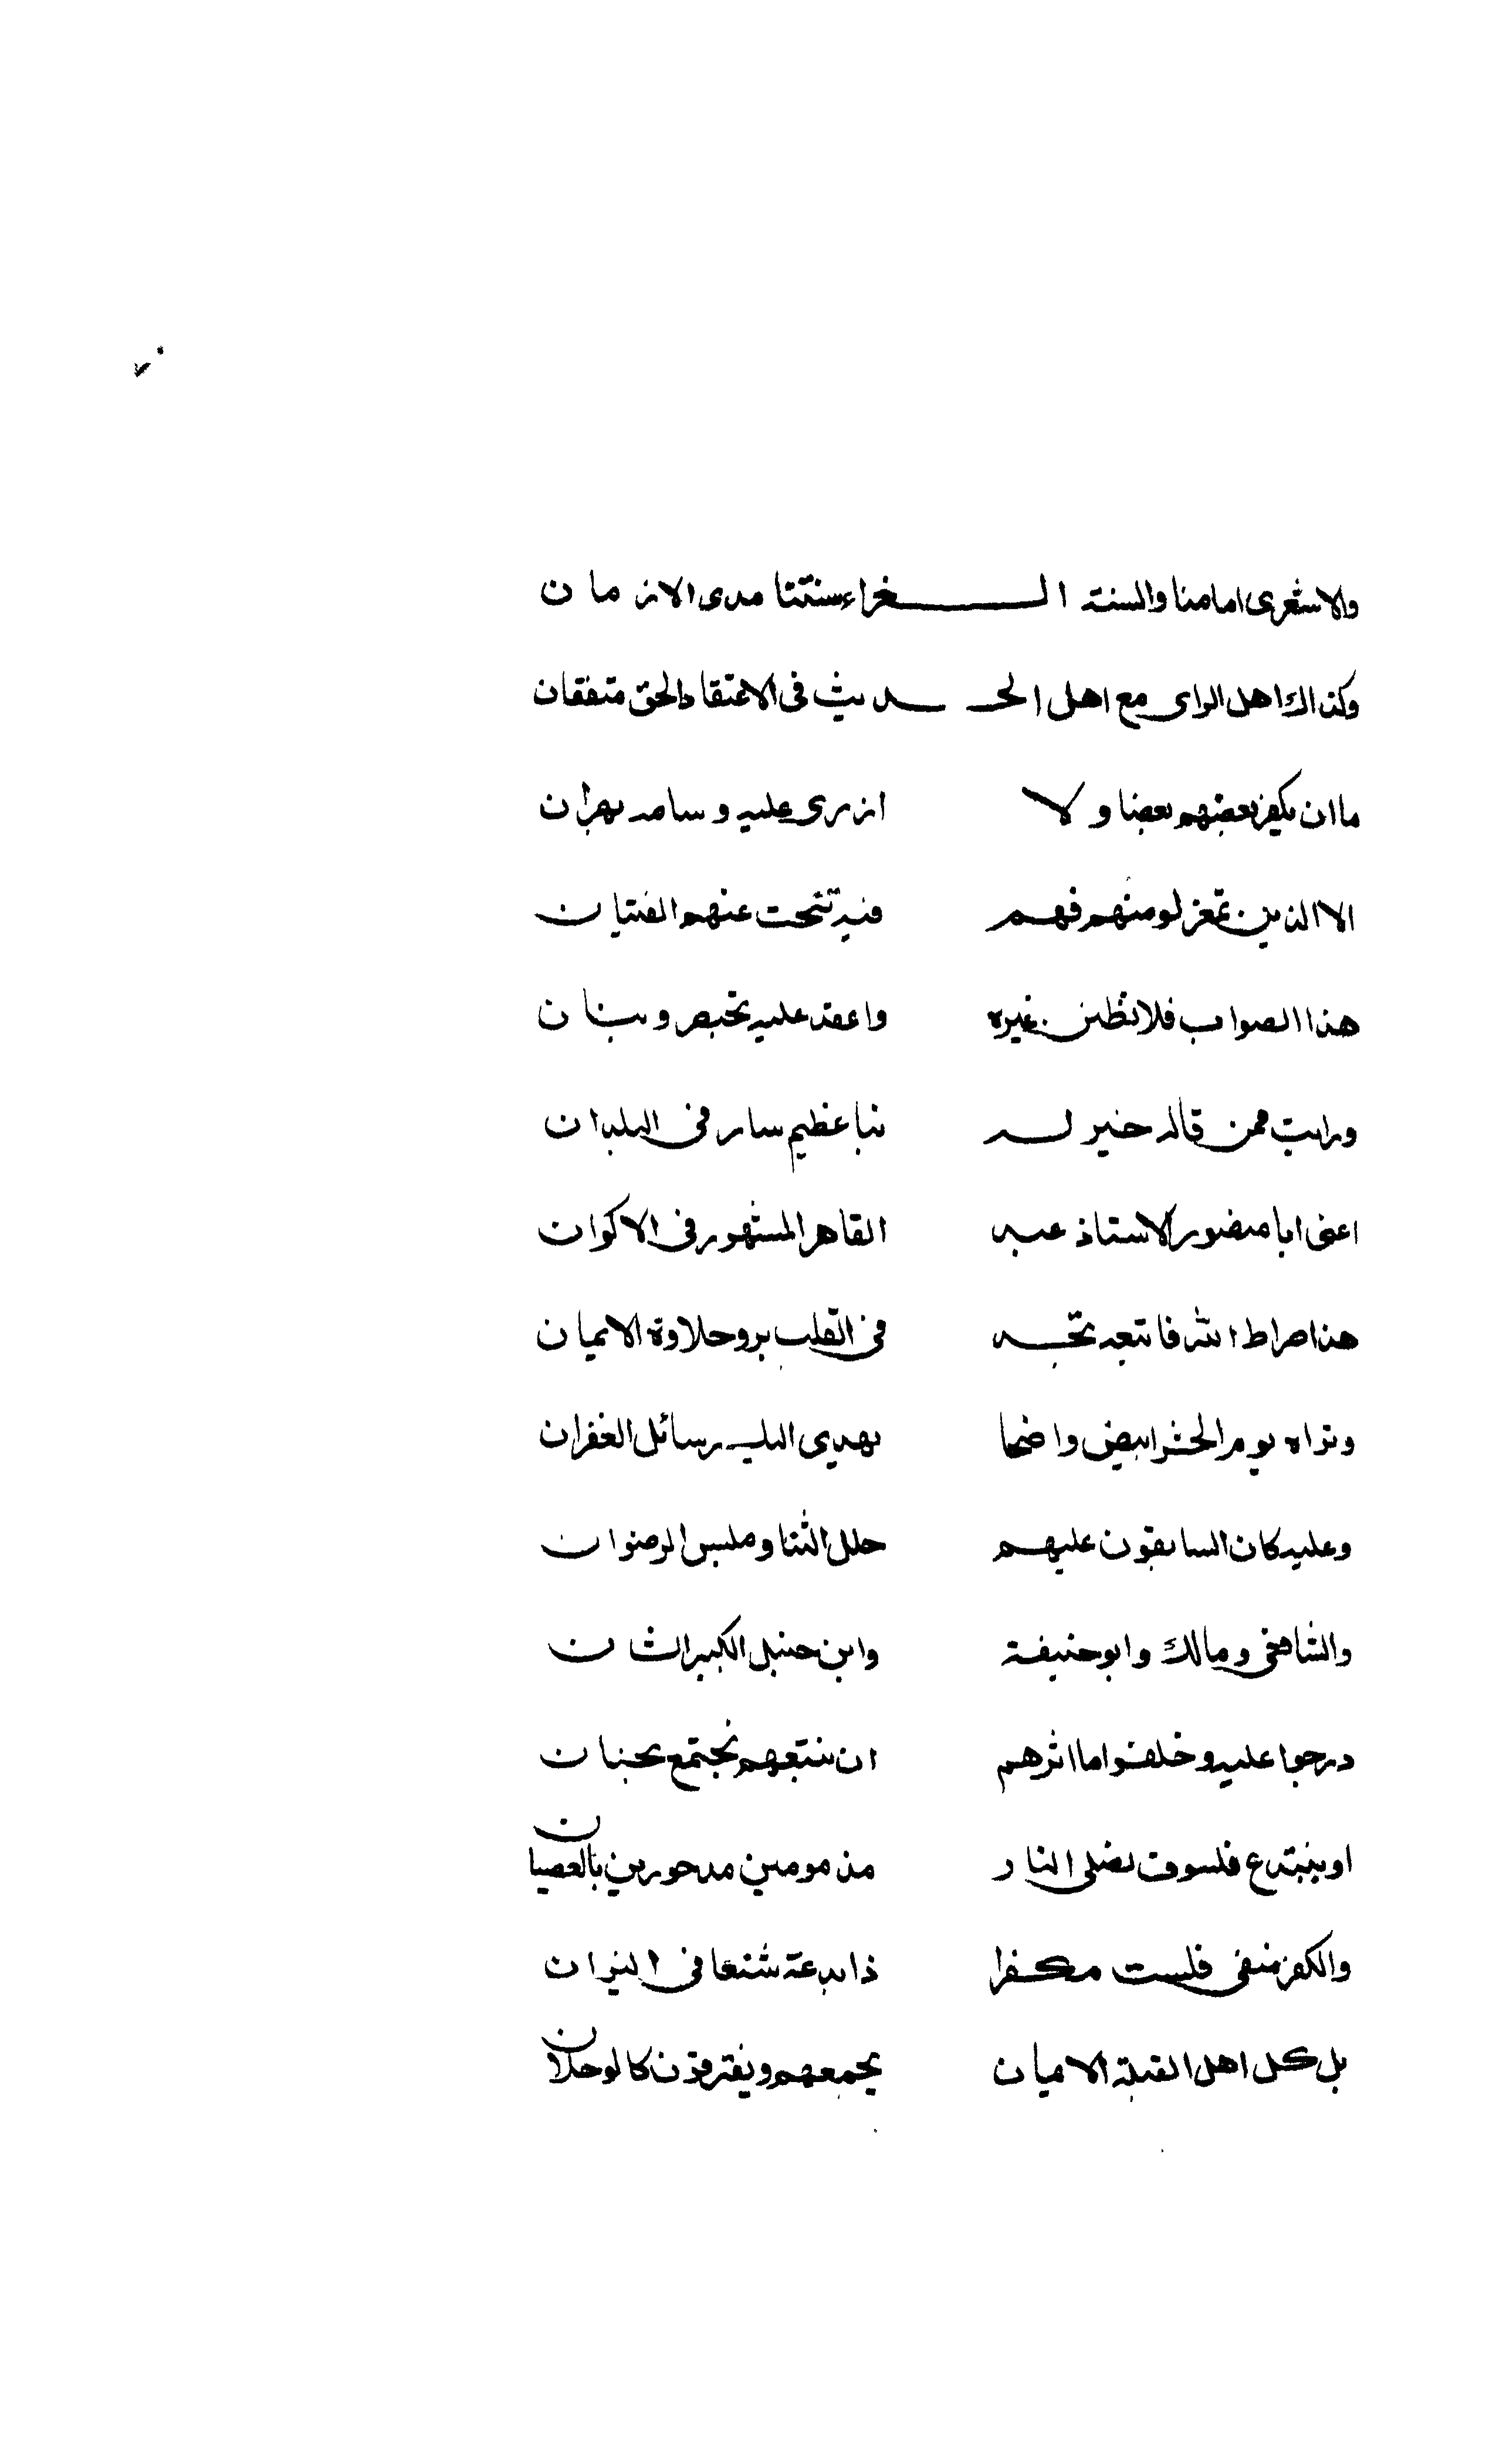 والاشعرى امامنا والسنة الـــــغراء سنتنا مدى الازمان
وكذاك اهل الراى مع اهل الحـــديث فى الاعتقاد الحق متفقان
ما ان يكفر بعضهم بعضا ولا ازرى عليه وسامه بهوان
الا الذين تمعزلو منهم فهم فيه تنحت عنهم الفتيان
هذا الصواب فلا تظنن غيره واعقد عليه بخنصر وبنان
ورايت ممن قاله حبر له نبا عظيم سار فى البلدان
اعنى ابا منصور الاستاذ عبد القاهر المشهور فى الاكوان
هذا صراط الله فاتبعه تجد فى القلب برد حلاوة الايمان
وتراه يوم الحشر ابيض واضحا يهدي اليك رسائل الغفران
وعليه كان السابقون عليهم حلل الثنا وملبس الرضوان
والشافعى ومالك وابو حنيفة وابن حنبل الكبير الشان
درجوا عليه وخلفوا اما اثرهم ان نتبعهم نجتمع بجنان
او نبتدع فلسوف نصلى النار مذمومين مدحورين بالعصيان
والكفر منفى فلست مكفرا ذا بدعة شنعا فى النيران
بل كل اهل القبلة الايمان يجمعهم ويفترقون كالوحدان